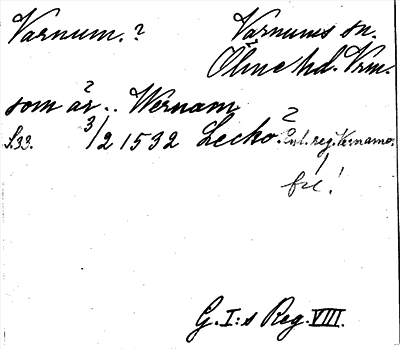 Varnum.? Varnums sn.
Ölme hd. Vrm.
som är.. Wernam ?
S.33. 3/2 1532 Lecko ? Enl. reg. Vernamo,
fel!
G.I:s Reg. VIII.